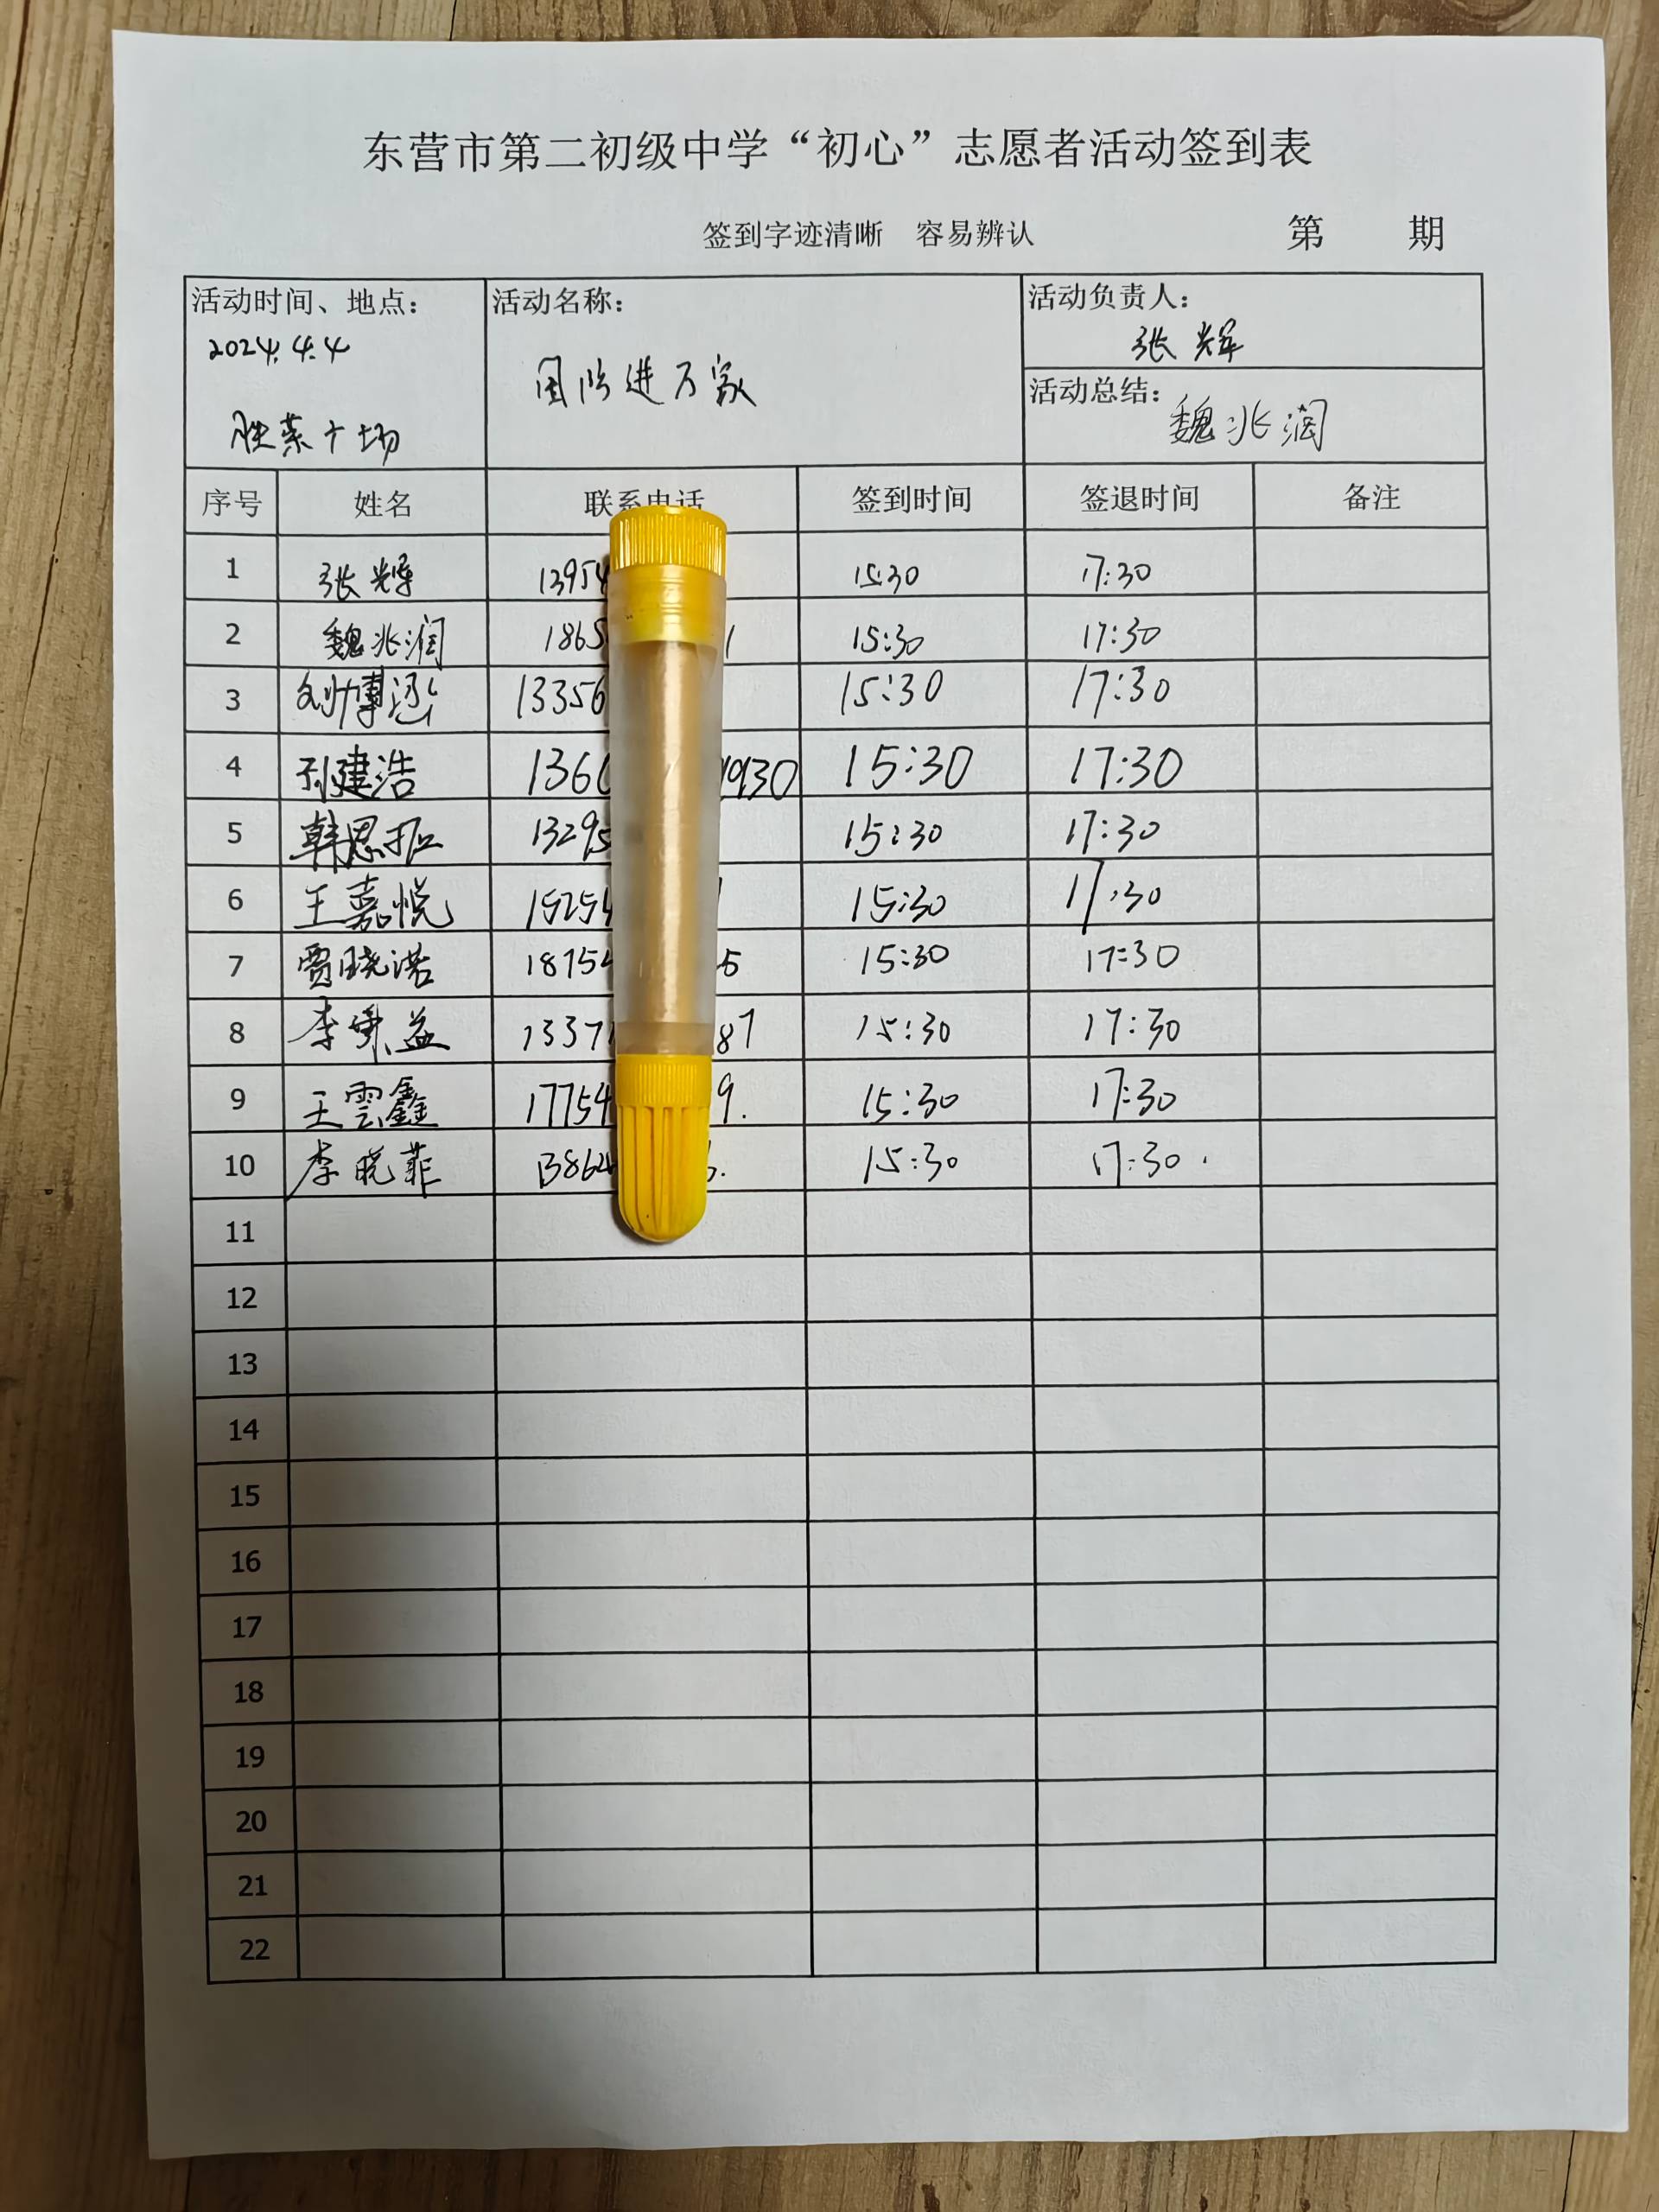 东营市第二初级中学“初心”志愿者活动签到表
签到字迹清晰 容易辨认 第 期
活动时间、地点： 活动名称： 活动负责人：
2024.4.4 张辉
国防进万家
活动总结： 魏兆润
广场
序号 姓名 联系电话 签到时间 签退时间 备注
1 张辉 13954 15:30 17:30
2 魏兆润 1865 1 15:30 17:30
3 刘博 13356 15:30 17:30
4 孙建浩 136 1930 15:30 17:30
5 韩恩 1329 15:30 17:30
6 王嘉悦 15254 15:30 17:30
7 贾晓浩 18754 5 15:30 17:30
8 李秉益 1337 87 15:30 17:30
9 王雲鑫 17754 9. 15:30 17:30
10 李晓菲 13864 15:30 17:30.
11
12
13
14
15
16
17
18
19
20
21
22